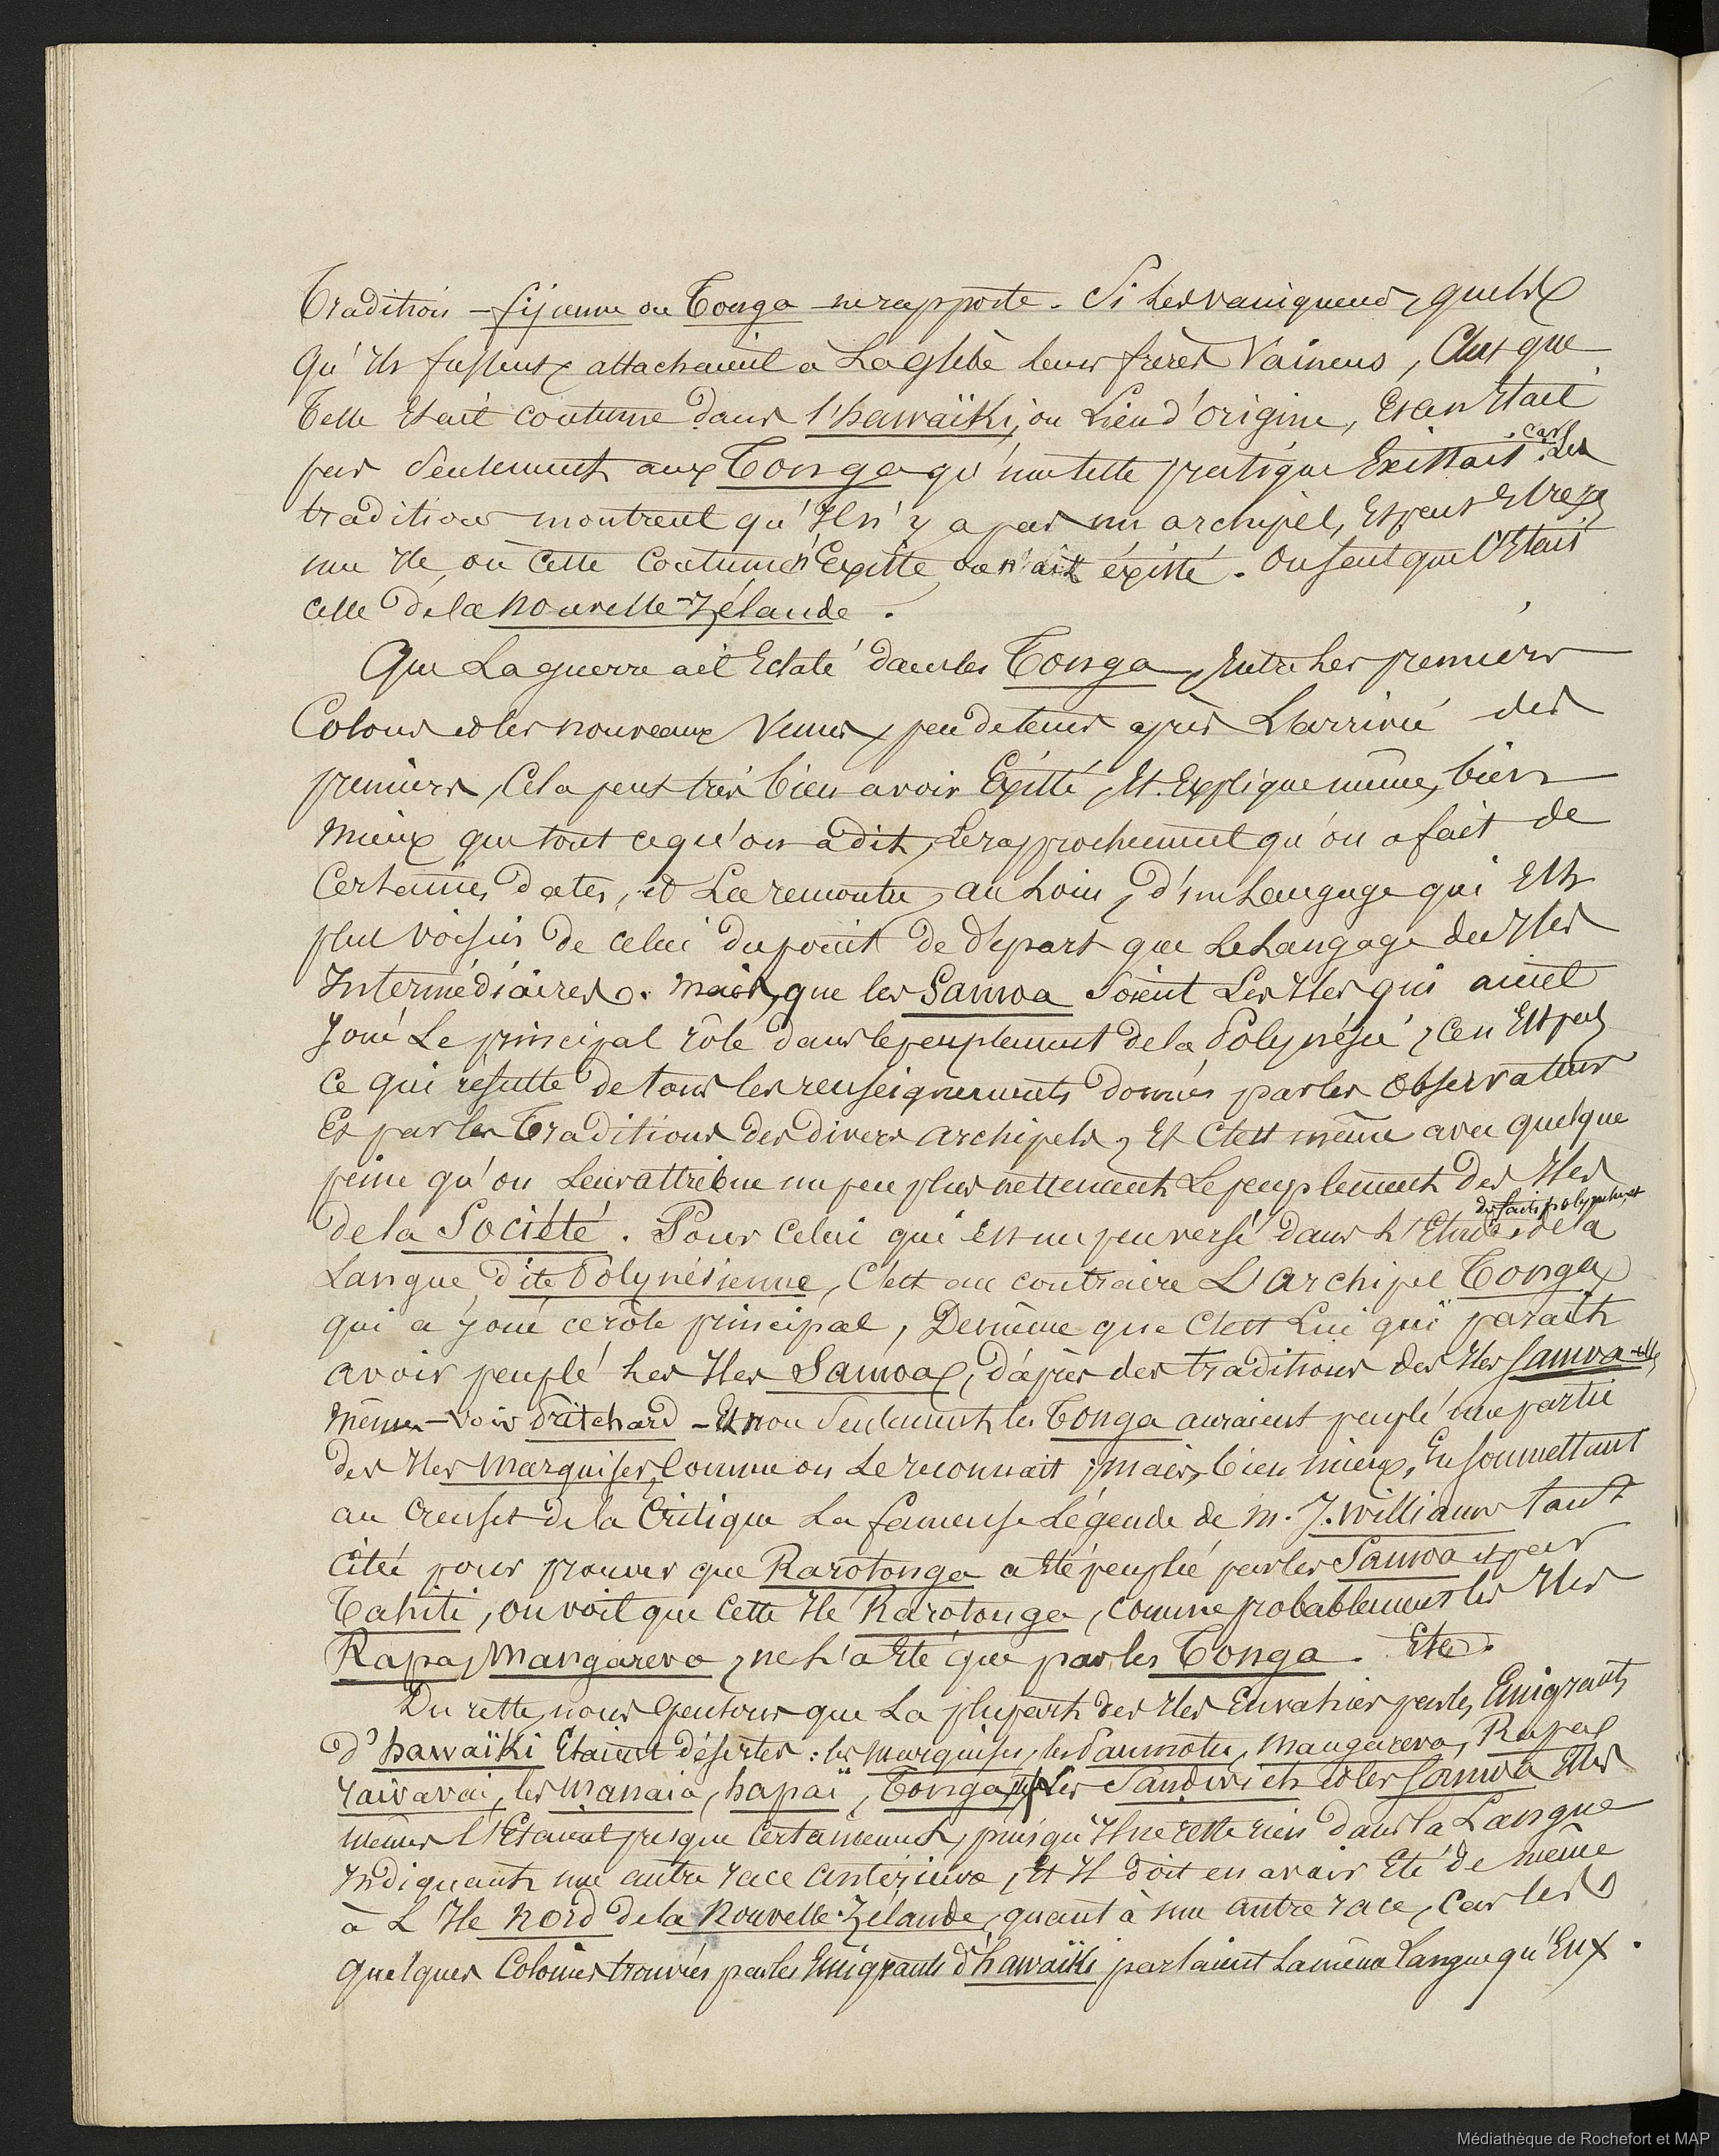 Tradition – fijienne ou Tonga – ne rapporte. Si les vainqueurs, quels
qu'ils fussent, attachaient à la glèbe leurs frères vaincus, c'est que
telle était coutume dans l'hawaïki, ou lieu d'origine, et ce n'était
pas seulement aux Tonga qu'une telle pratique existait. car les
traditions montrent qu'il n'y a pas un archipel, et peut être pas
une île, où cette coutume n'existe ou n'ait existé. On sent que c'était
celle de la Nouvelle-Zélande.
Que la guerre ait éclaté dans les Tonga, entre les premiers
colons et les nouveaux venus, peu de tems après l'arrivée des
premiers, cela peut très bien avoir existé, et explique même, bien
mieux que tout ce qu'on a dit, le rapprochement qu'on a fait de
certaines dates, et la rencontre, au loin, d'un langage qui est
plus voisin de celui du point de départ que le langage des îles
intermédiaires. mais, que les Samoa soient les îles qui aient
joué le principal rôle dans le peuplement de la Polynésie, ce n'est pas
ce qui résulte de tous les renseignements donnés par les observateurs
et par les traditions des divers archipels, et c'est même avec quelque
peine qu'on leur attribue un peu plus nettement le peuplement des îles
de la Société. Pour celui qui est un peu versé dans l'étude des faits polynésiens et de la
langue dite Polynésienne, c'est au contraire l'archipel Tonga,
qui a joué ce rôle principal, de même que c'est lui qui paraît
avoir peuplé les îles Samoa, d'après des traditions des îles Samoa elles
mêmes – voir Pritchard – et non seulement les Tonga auraient peuplé une partie
des îles Marquises, comme on le reconnait, mais, bien mieux, en soumettant
au creuset de la critique la fameuse légende de M. J. Williams tant
citée pour prouver que Rarotonga a été peuplée par les Samoa et par
Tahiti, on voit que cette île Rarotonga, comme probablement les îles
Rapa, Mangareva, ne l'a été que par les Tonga. Etc.
Du reste, nous pensons que la plupart des îles envahies par les émigrants
d'hawaïki étaient désertes : les Marquises, les Paumotu, Mangareva, Rapa,
raivavai, les manaia, hapaï, Tonga, les Sandwich et les Samoa elles
mêmes l'étaient presque certainement, puisqu'il ne reste rien dans la langue
indiquant une autre race antérieure, et il doit en avoir été de même
à l'île Nord de la Nouvelle-Zélande, quant à une autre race, car les
quelques colonies trouvées par les émigrants d'hawaïki parlaient la même langue qu'eux.
Médiathèque de Rochefort et MAP